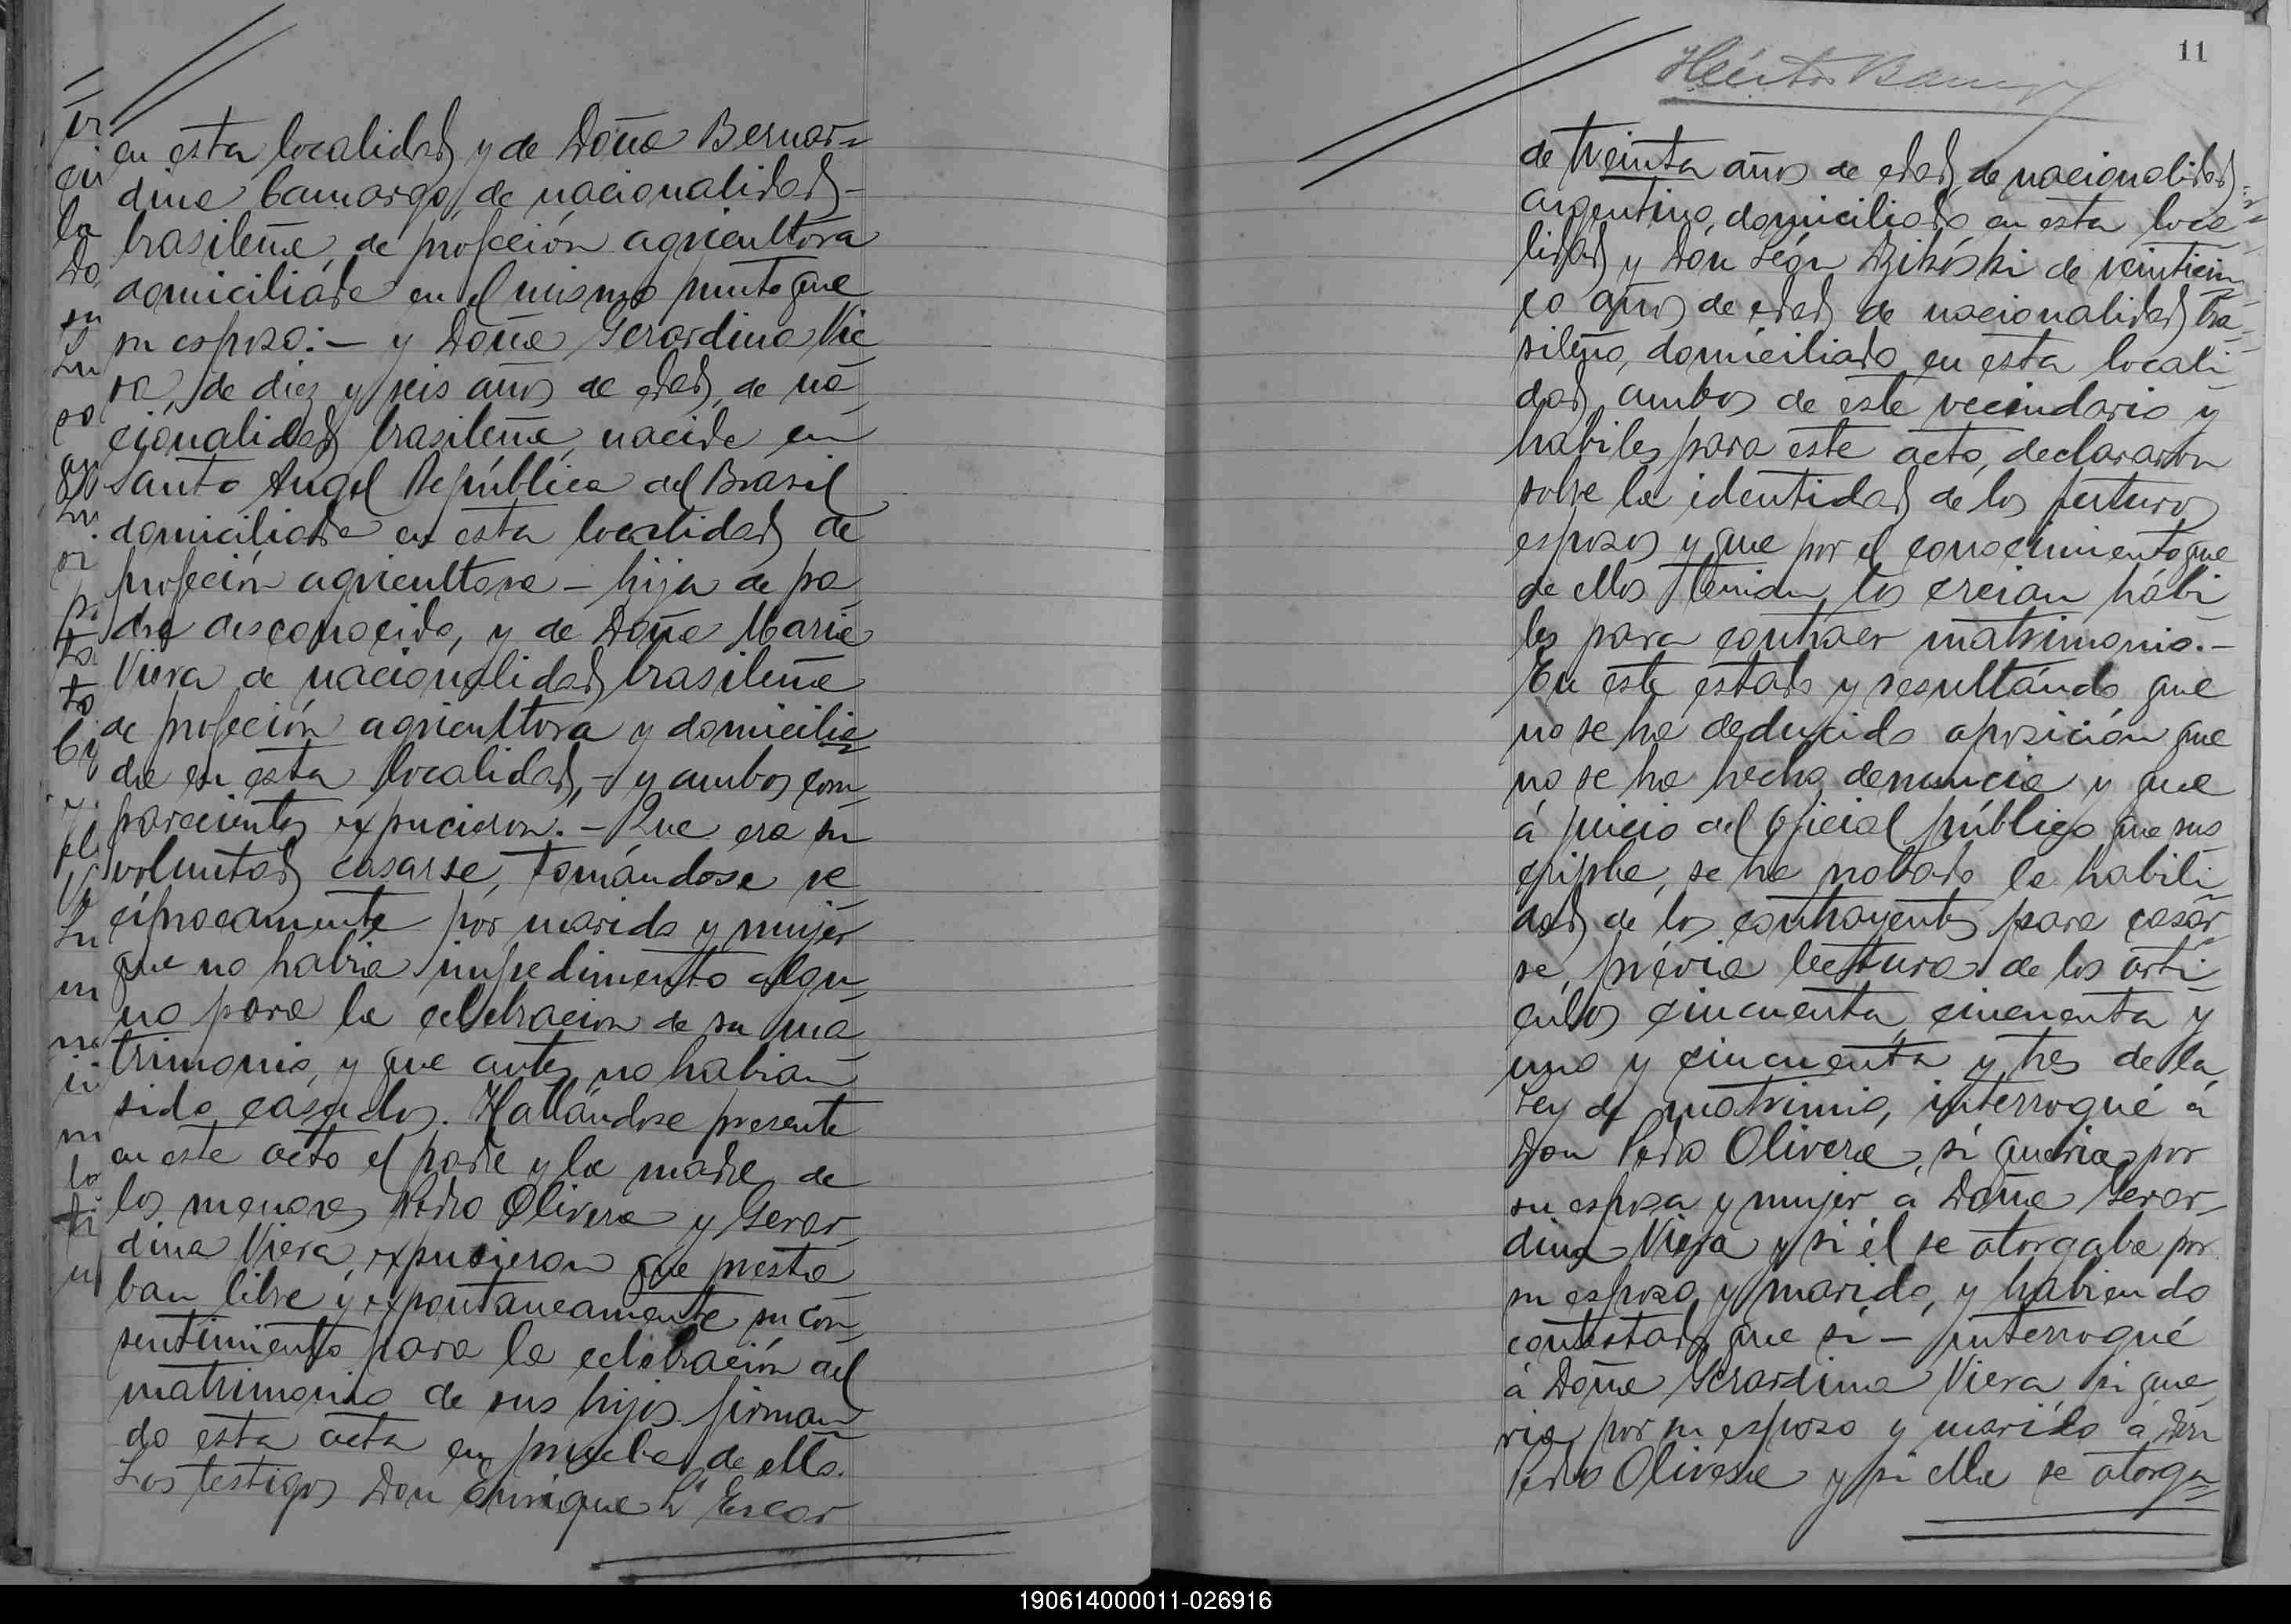 en esta localidad y de Doña Bernar=
dina Camargo, de nacionalidad-
brasileña, de profeción agricultora
domiciliada en el mismo punto que
su esposo:- y Doña Gerardina Vie
ra, de diez y seis años de edad, de na
cionalidad brasileña, nacida en
Santo Angel República del Brasil
domiciliada en esta localidad de
profeción agricultora - hija de pa
dre desconocido, y de Doña Maria
Viera de nacionalidad brasileña
de profeción agricultora y domicilia
da en esta localidad, - y ambos com
parecientes expucieron. - Que era su
voluntad casarse, tomándose re
ciprocamente por marido y mujer
que no habia impedimento algu
no para la celebracion de su ma
trimonio, y que antes no habian
sido casados. Hallándose presente
en este acto el padre y la madre de
los menores Pedro Olivera y Gerar
dina Viera, expusieron que presta
ban libre y expontaneamente su con
sentimiento para la celebración del
matrimonio de sus hijos firman
do esta acta en prueba de ello.
Los testigos Don Enrique L' Escar
11
Héctor
de treinta años de edad, de nacionalidad
argentino, domiciliado en esta loca
lidad y Don León de veinticin
co años de edad de nacionalidad bra
sileño, domiciliado en esta locali
dad, ambos de este vecindario y
habiles para este acto, declararon
sobre la identidad de los futuros
esposos y que por el conocimiento que
de ellos tenian los creian hábi
les para contraer matrimonio.-
En este estado y resultándo que
no se ha deducido oposición que
no se ha hecho denuncia y que
á juicio del Oficial público que sus
cribe, se ha probado la habili
dad de los contrayentes para casar
se, prévia lectura de los arti
culos cincuenta, cincuenta y
uno y cincuenta y tres de la
Ley de matrimio, interrogué á
Don Pedro Olivera, si queria por
su esposa y mujer á Doña Gerar-
dina Viera y si él se otorgaba por
su esposo y marido, y habiendo
contestado que si - interrogué
á Doña Gerardina Viera si que
ria por su esposo y marido á Don
Pedro Olivera y si ella se otorga=
190614000011-026916